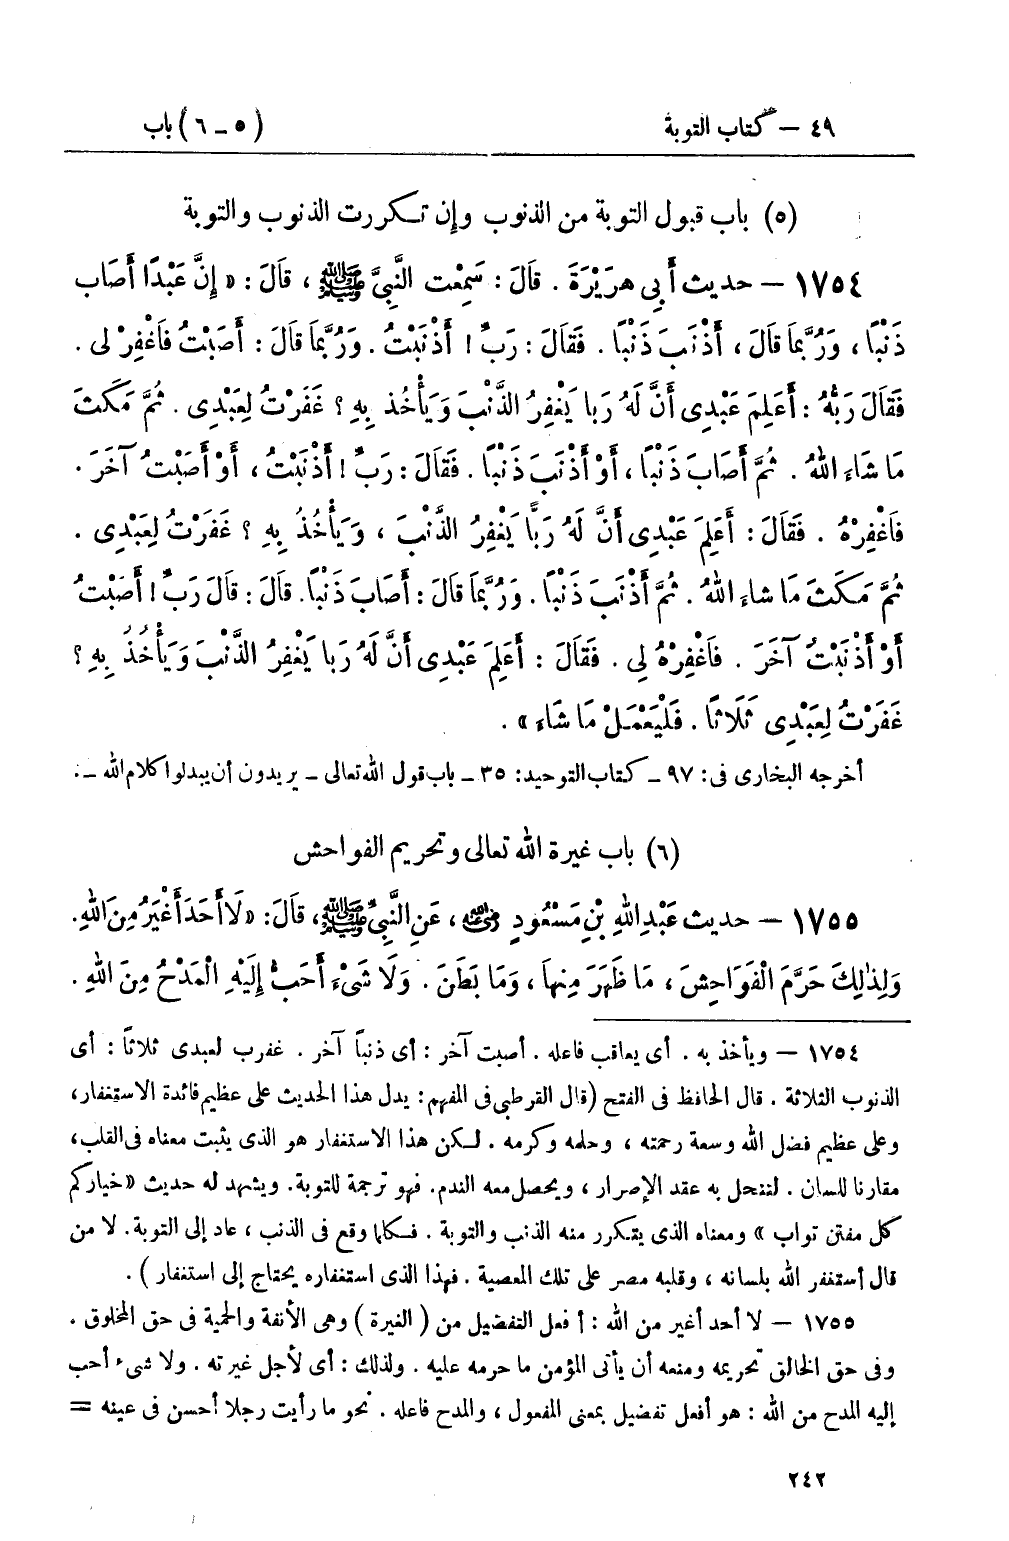 ٤٩ – كتاب التوبة
(٥ – ٦) باب
(٥) باب قبول التوبة من الذنوب وإن تكررت الذنوب والتوبة
١٧٥٤ – حديث أَبِي هرَيْرَةَ . قَالَ : سَمِعْت النَّبِيَّ ﷺ ، قَالَ : « إِنَّ عَبْدًا أَصَابَ
ذَنْبًا ، وَرُبَّمَا قَالَ ، أَذْنَبَ ذَنْبًا . فَقَالَ : رَبِّ ! أَذْنَبْتُ . وَرُبَّمَا قَالَ : أَصَبْتُ فَاغْفِرْ لِى .
فَقَالَ رَبُّهُ : أَعَلِمَ عَبْدِى أَنَّ لَهُ رَبا يَغْفِرُ الذَّنْبَ وَيَأْخُذ بِهِ ؟ غَفَرْتُ لِعَبْدِى . ثُمَّ مَكَثَ
مَا شَاءَ اللهُ . ثُمَّ أَصَابَ ذَنْبًا ، أَوْ أَذْنَبَ ذَنْبًا . فَقَالَ : رَبِّ ! أَذْنَبْتُ ، أَوْ أَصَبْتُ آخَرَ .
فَاغْفِرْهُ . فَقَالَ : أَعَلِمَ عَبْدِى أَنَّ لَهُ رَبًّا يَغْفِرُ الذَّنْبَ ، وَيَأْخُذُ بِهِ ؟ غَفَرْتُ لِعَبْدِى .
ثُمَّ مَكَثَ مَا شاءَ اللهُ . ثُمَّ أَذْنَبَ ذَنْبًا . وَرُبَّمَا قَالَ : أَصَابَ ذَنْبًا. قَالَ : قَالَ رَبِّ ! أَصَبْتُ
أَوْ أَذْنَبْتُ آخَرَ . فَاغْفِرْهُ لِى . فَقَالَ : أَعَلِمَ عَبْدِى أَنَّ لَهُ رَبا يَغْفِرُ الذَّنْبَ وَيَأْخُذُ بِهِ ؟
غَفَرْتُ لِعَبْدِى ثَلَاثًا . فَلْيَعْمَلْ مَا شَاءَ » .
أخرجه البخارى فى : ٩٧ – كتاب التوحيد : ٣٥ – باب قول الله تعالى – يريدون أن يبدلوا كلام الله – .
(٦) باب غيرة الله تعالى وتحريم الفواحش
١٧٥٥ – حديث عَبْدِ اللهِ بْنِ مَسْعُودٍ رضي الله عنه ، عَنِ النَّبِيِّ ﷺ ، قَالَ : « لَا أَحَدَ أَغْيَرُ مِنَ اللهِ .
وَلِذٰلِكَ حَرَّمَ الْفَوَاحِشَ ، مَا ظَهَرَ مِنْهَا ، وَمَا بَطَنَ . وَلَا شَىْءَ أَحَبُّ إِلَيْهِ الْمَدْحُ مِنَ اللهِ .
١٧٥٤ – ويأخذ به . أى يعاقب فاعله . أصبت آخر : أى ذنباً آخر . غفرب لعبدى ثلاثاً : أى
الذنوب الثلاثة . قال الحافظ فى الفتح (قال القرطبى فى المفهم : يدل هذا الحديث على عظيم فائدة الاستغفار ،
وعلى عظيم فضل الله وسعة رحمته ، وحلمه وكرمه . لكن هذا الاستغفار هو الذى يثبت معناه فى القلب ،
مقارنا للسان . لتنحل به عقد الإصرار ، ويحصل معه الندم. فهو ترجمة للتوبة. ويشهد له حديث « خياركم
كل مفتن تواب » ومعناه الذى يتكرر منه الذنب والتوبة . فكلما وقع فى الذنب ، عاد إلى التوبة. لا من
قال أستغفر الله بلسانه ، وقلبه مصر على تلك المعصية . فهذا الذى استغفاره يحتاج إلى استغفار ) .
١٧٥٥ – لا أحد أغير من الله : أفعل التفضيل من ( الغيرة ) وهى الأنفة والحمية فى حق المخلوق .
وفى حق الخالق تحريمه ومنعه أن يأتى المؤمن ما حرمه عليه . ولذلك : أى لأجل غيرته . ولا شىء أحب
إليه المدح من الله : هو أفعل تفضيل بمعنى المفعول ، والمدح فاعله . نحو ما رأيت رجلا أحسن فى عينه =
٢٤٢